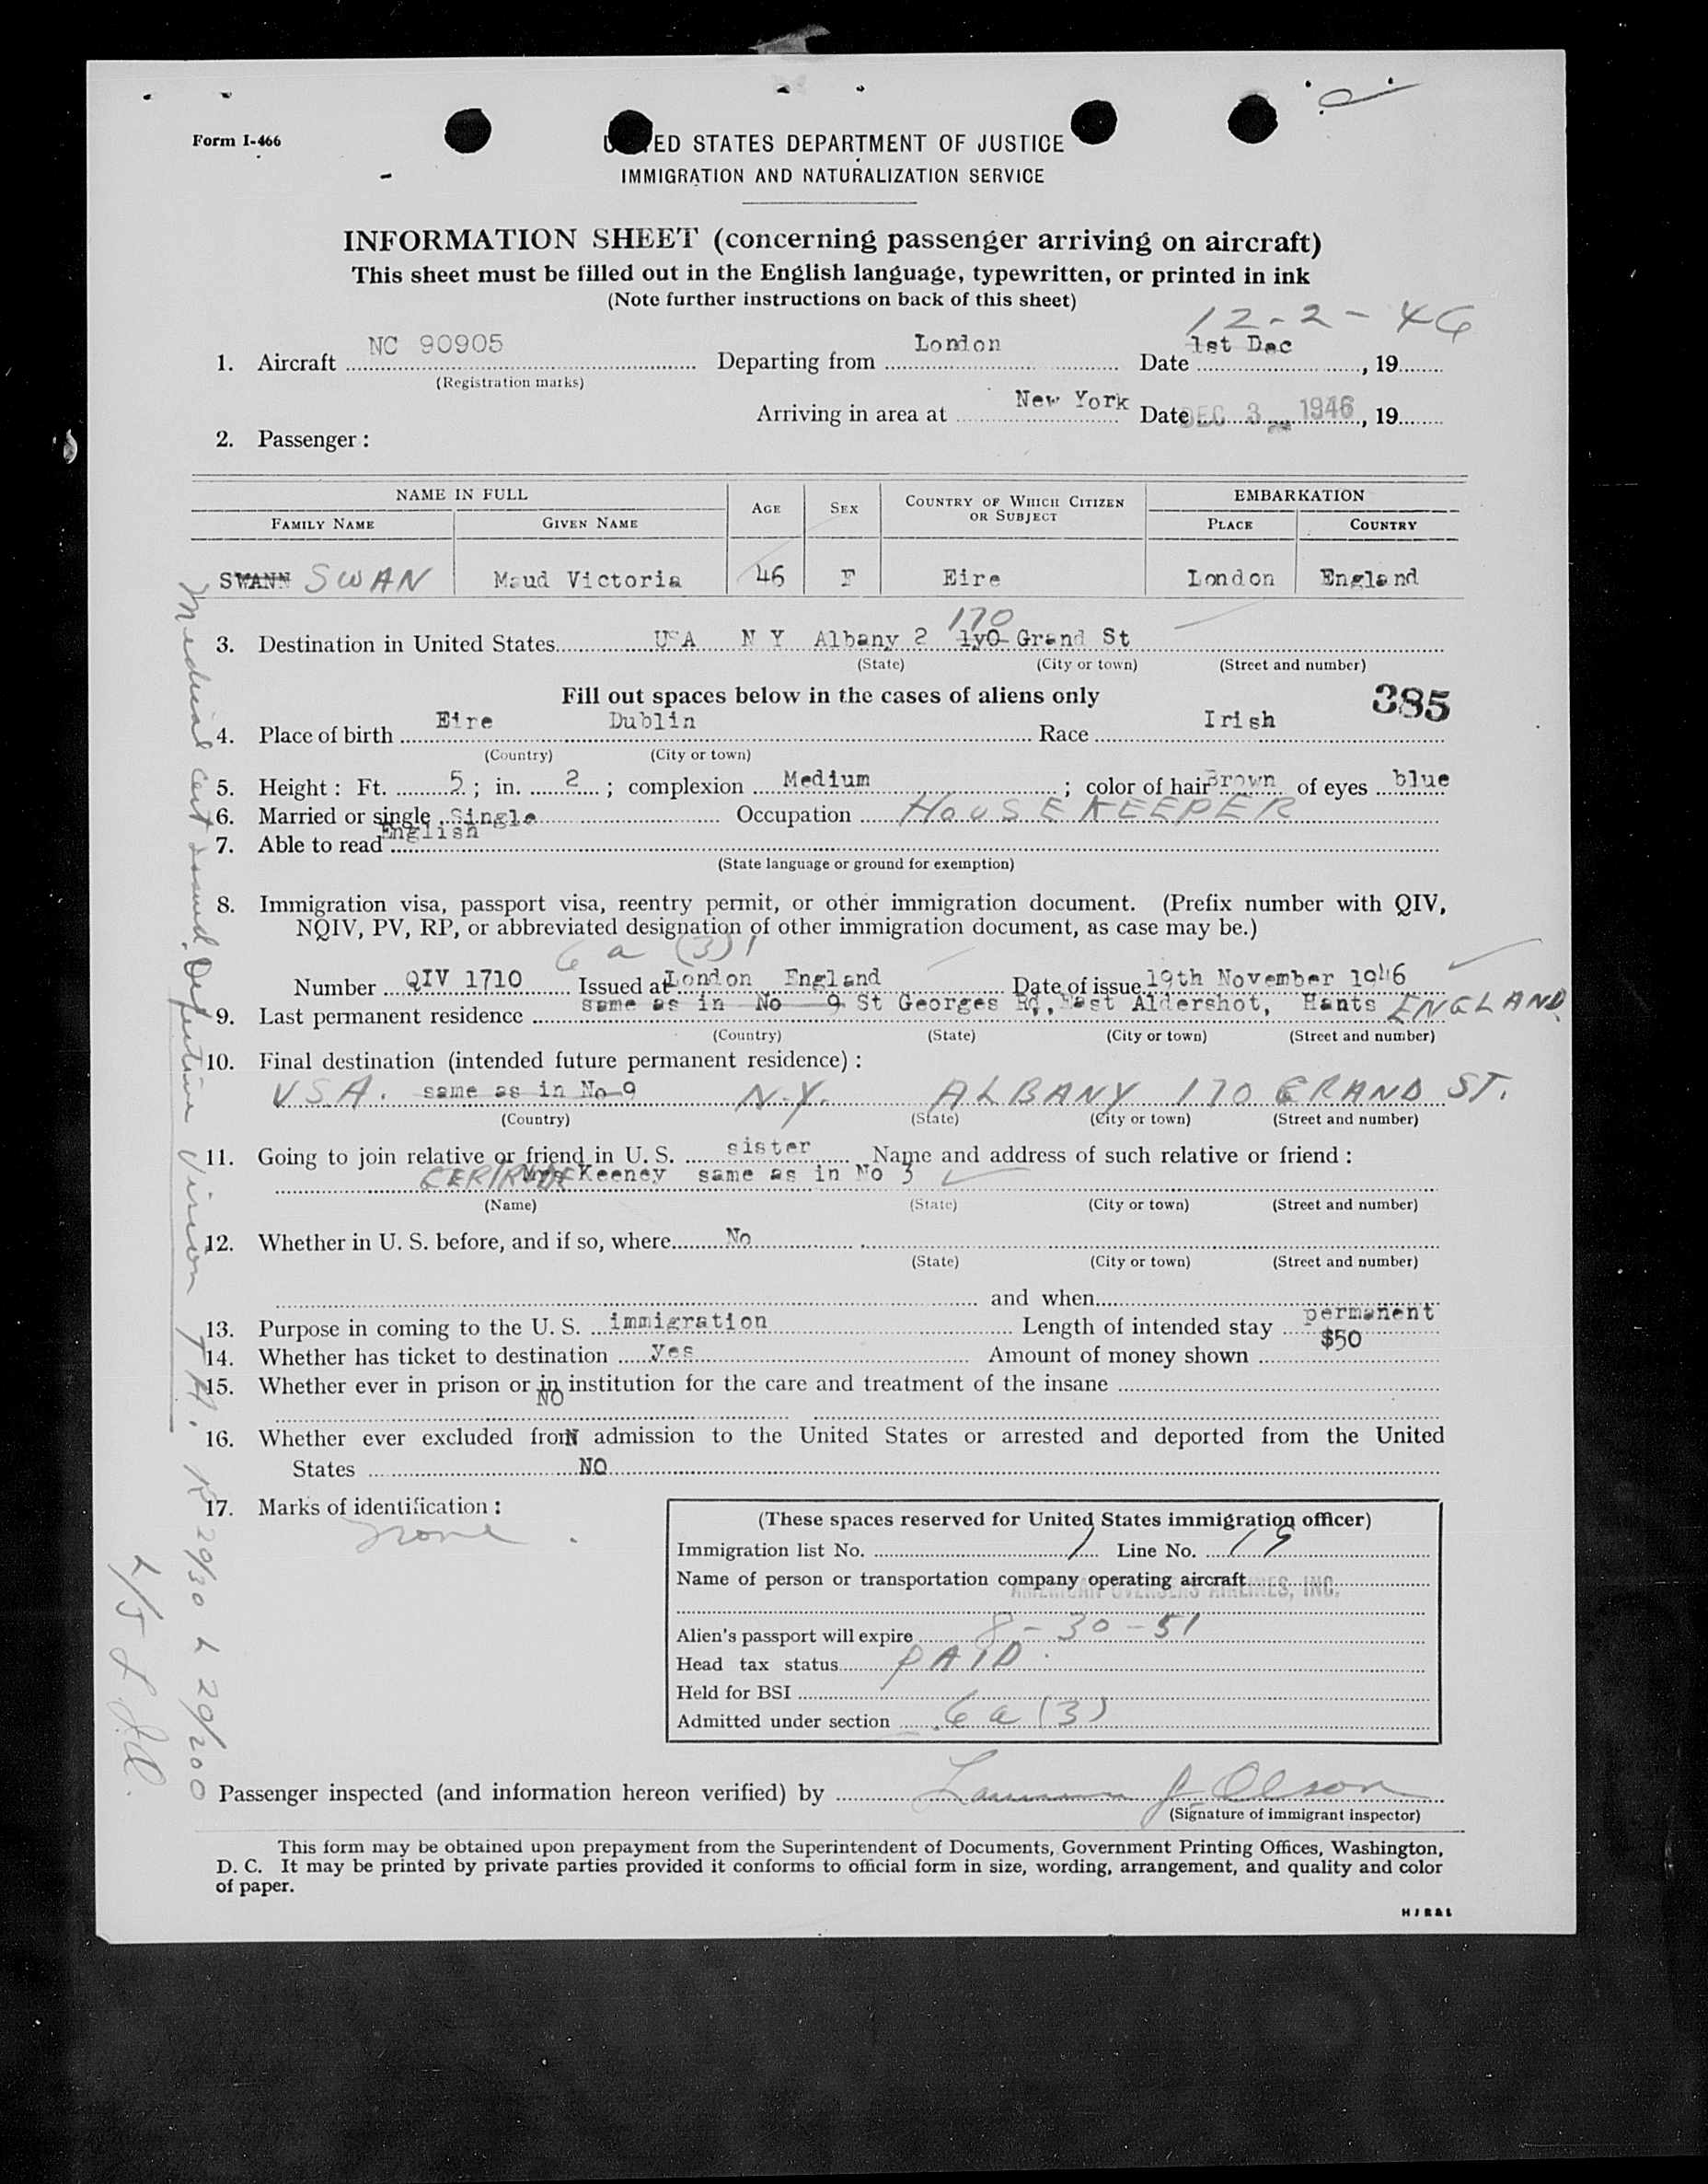 Form I-466
ED STATES DEPARTMENT OF JUSTICE
IMMIGRATION AND NATURALIZATION SERVICE
INFORMATION SHEET (concerning passenger arriving on aircraft)
This sheet must be filled out in the English language, typewritten, or printed in ink
(Note further instructions on back of this sheet)
12-2-46
1. Aircraft NC 90905 Departing from London Date 1st Dec, 19
(Registration marks)
Arriving in area at New York Date DEC 3 1946, 19
2. Passenger:
NAME IN FULL AGE SEX COUNTRY OF WHICH CITIZEN OR SUBJECT EMBARKATION
FAMILY NAME GIVEN NAME PLACE COUNTRY
SWANN SWAN Maud Victoria 46 F Eire London England
170
3. Destination in United States USA N Y Albany 2 1y0 Grand St
(State) (City or town) (Street and number)
Fill out spaces below in the cases of aliens only 385
4. Place of birth Eire Dublin Race Irish
(Country) (City or town)
5. Height: Ft. 5; in. 2; complexion Medium; color of hair Brown of eyes blue
6. Married or single Single Occupation HOUSEKEEPER
7. Able to read English
(State language or ground for exemption)
8. Immigration visa, passport visa, reentry permit, or other immigration document. (Prefix number with QIV,
NQIV, PV, RP, or abbreviated designation of other immigration document, as case may be.)
6a (3)1
Number QIV 1710 Issued at London England Date of issue 19th November 1946
9. Last permanent residence same as in No 9 St Georges Rd, East Aldershot, Hants ENGLAND
(Country) (State) (City or town) (Street and number)
10. Final destination (intended future permanent residence):
U.S.A. same as in No 9 N.Y. ALBANY 170 GRAND ST.
(Country) (State) (City or town) (Street and number)
11. Going to join relative or friend in U. S. sister Name and address of such relative or friend:
GERTRUDE Mrs Keeney same as in No 3
(Name) (State) (City or town) (Street and number)
12. Whether in U. S. before, and if so, where No
(State) (City or town) (Street and number)
and when
13. Purpose in coming to the U. S. immigration Length of intended stay permanent
14. Whether has ticket to destination yes Amount of money shown $50
15. Whether ever in prison or in institution for the care and treatment of the insane
NO
16. Whether ever excluded from admission to the United States or arrested and deported from the United
States NO
17. Marks of identification:
None
(These spaces reserved for United States immigration officer)
Immigration list No. 1 Line No. 19
Name of person or transportation company operating aircraft
AMERICAN OVERSEAS AIRLINES, INC.
Alien's passport will expire 8-30-51
Head tax status PAID
Held for BSI
Admitted under section 6a(3)
Passenger inspected (and information hereon verified) by J Olson
(Signature of immigrant inspector)
This form may be obtained upon prepayment from the Superintendent of Documents, Government Printing Offices, Washington,
D. C. It may be printed by private parties provided it conforms to official form in size, wording, arrangement, and quality and color
of paper.
Medical Cert issued. Defective Vision
R 20/30 L 20/200